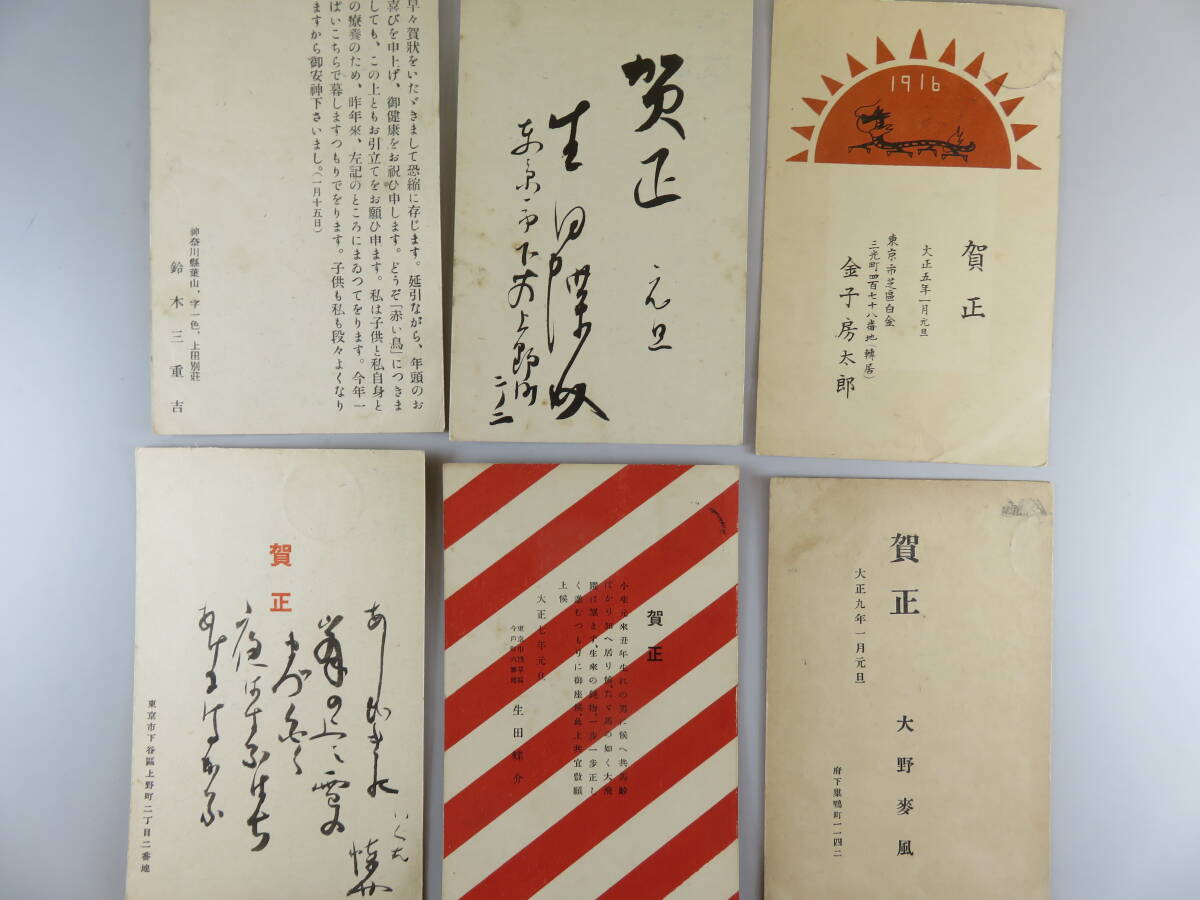 早々賀狀をいたゞきまして恐縮に存じます。延引ながら、年頭のお
喜びを申上げ、御健康をお祝ひ申します。どうぞ「赤い鳥」につきま
しても、この上ともお引立てをお願ひ申ます。私は子供と私自身と
の療養のため、昨年來、左記のところにまゐつてをります。今年一
ぱいこちらで暮しますつもりでをります。子供も私も段々よくなり
ますから御安神下さいまし。(一月十五日)
神奈川縣葉山、字一色、上田別莊
鈴木三重吉
賀正
元旦
生田
東京市下谷上野町
二ノ二
1916
賀正
大正五年一月元旦
東京市芝區白金
三光町四百七十八番地(轉居)
金子房太郎
賀正
東京市下谷區上野町二丁目二番地
賀正
小生元來丑年生れの男に候へ共馬齡
ばかり加へ居り候、たゞ馬の如く大飛
躍は望まず、生來の鈍物、一歩一歩正し
く進むつもりに御座候、此上共宜敷願
上候
大正七年元旦
東京市淺草區
今戸町六番地
生田蝶介
賀正
大正九年一月元旦
大野麥風
府下巢鴨町一一四二